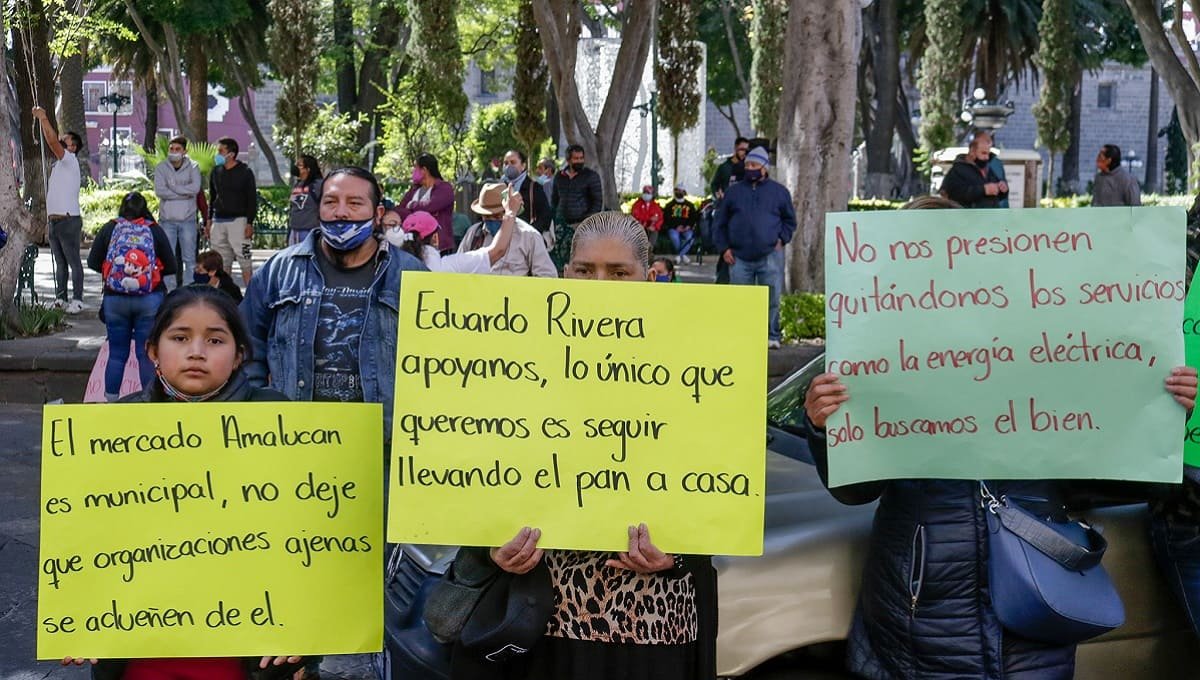 El mercado Amalucan
es municipal, no deje
que organizaciones ajenas
se adueñen de el.
Eduardo Rivera
apoyanos, lo único que
queremos es seguir
llevando el pan a casa.
No nos presionen
quitándonos los servicios
como la energía eléctrica,
solo buscamos el bien.